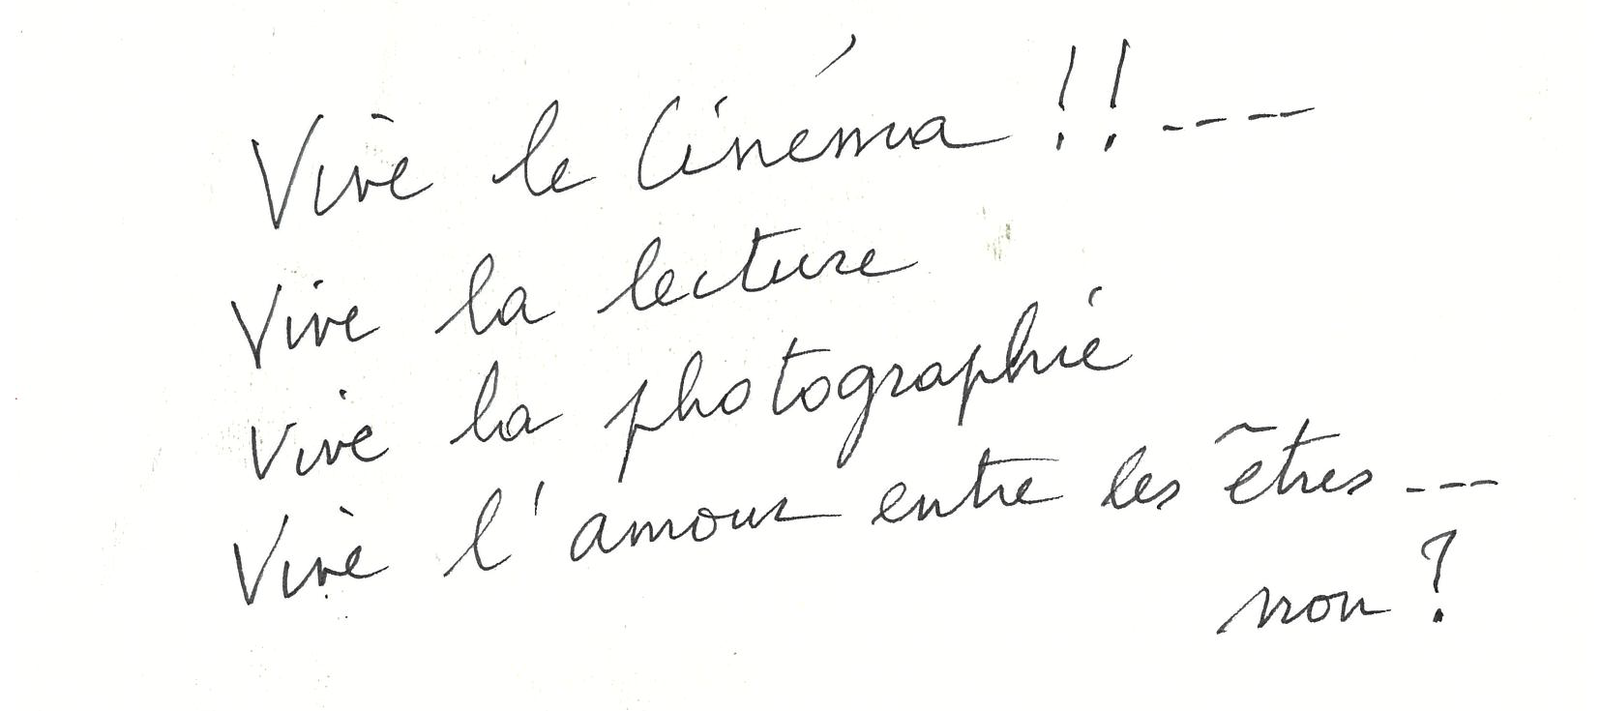 Vive le Cinéma !! ----
Vive la lecture
Vive la photographie
Vive l'amour entre les êtres ---
non ?